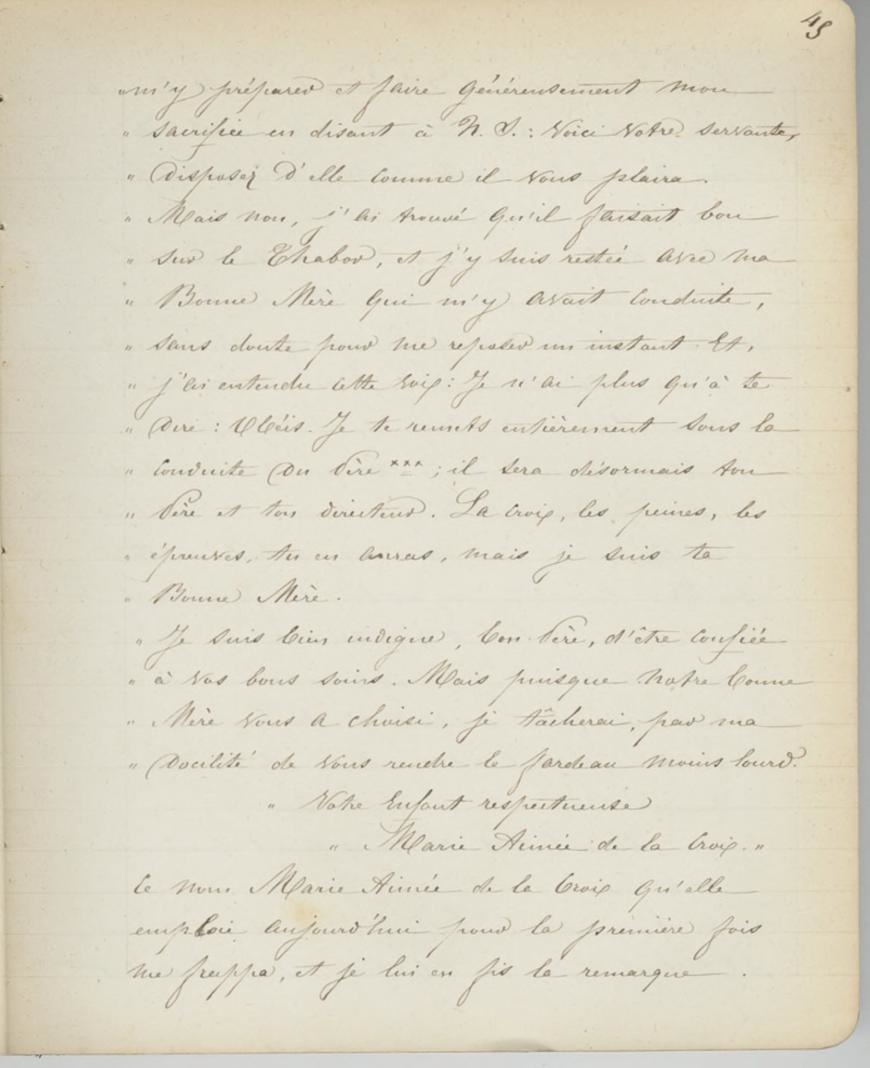 45
" m'y préparer et faire généreusement mon
" sacrifice en disant à N. S. : Voici votre servante,
" disposez d'elle comme il vous plaira.
" Mais non, j'ai trouvé qu'il faisait bon
" sur le Thabor, et j'y suis restée avec ma
" Bonne Mère qui m'y avait conduite,
" sans doute pour me reposer un instant. Et,
" j'ai entendu cette voix : Je n'ai plus qu'à te
" dire : Obéis. Je te remets entièrement sous la
" conduite du Père *** ; il sera désormais ton
" Père et ton directeur. La croix, les peines, les
" épreuves, tu en auras, mais je suis ta
" Bonne Mère.
" Je suis bien indigne, bon Père, d'être confiée
" à vos bons soins. Mais puisque notre bonne
" Mère vous a choisi, je tâcherai, par ma
" docilité de vous rendre le fardeau moins lourd.
" Votre Enfant respectueuse
" Marie Aimée de la Croix. "
Ce nom Marie Aimée de la Croix qu'elle
emploie aujourd'hui pour la première fois
me frappa, et je lui en fis la remarque.